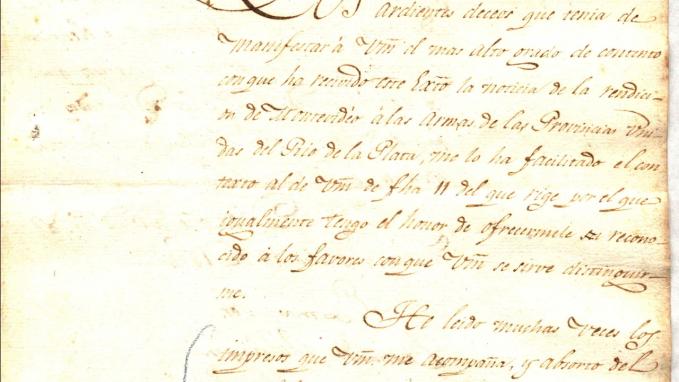 Ardientes deceos que tenia de
manifestar à Vm̃ el mas alto grado de contento
con que ha recivido este Exto la noticia de la rendici-
on de Montevidéo à las Armas de las Provincias Vni
das del Rio de la Plata, me lo ha facilitado el con
texto al de Vm̃ de fha 11 del que rige, por el que
igualmente tengo el honor de ofrecermele recono-
cido à los favores con que Vm̃ se sirve distinguir-
me.
He leido muchas veces los
impresos que Vm̃. me acompaña, y absorto del